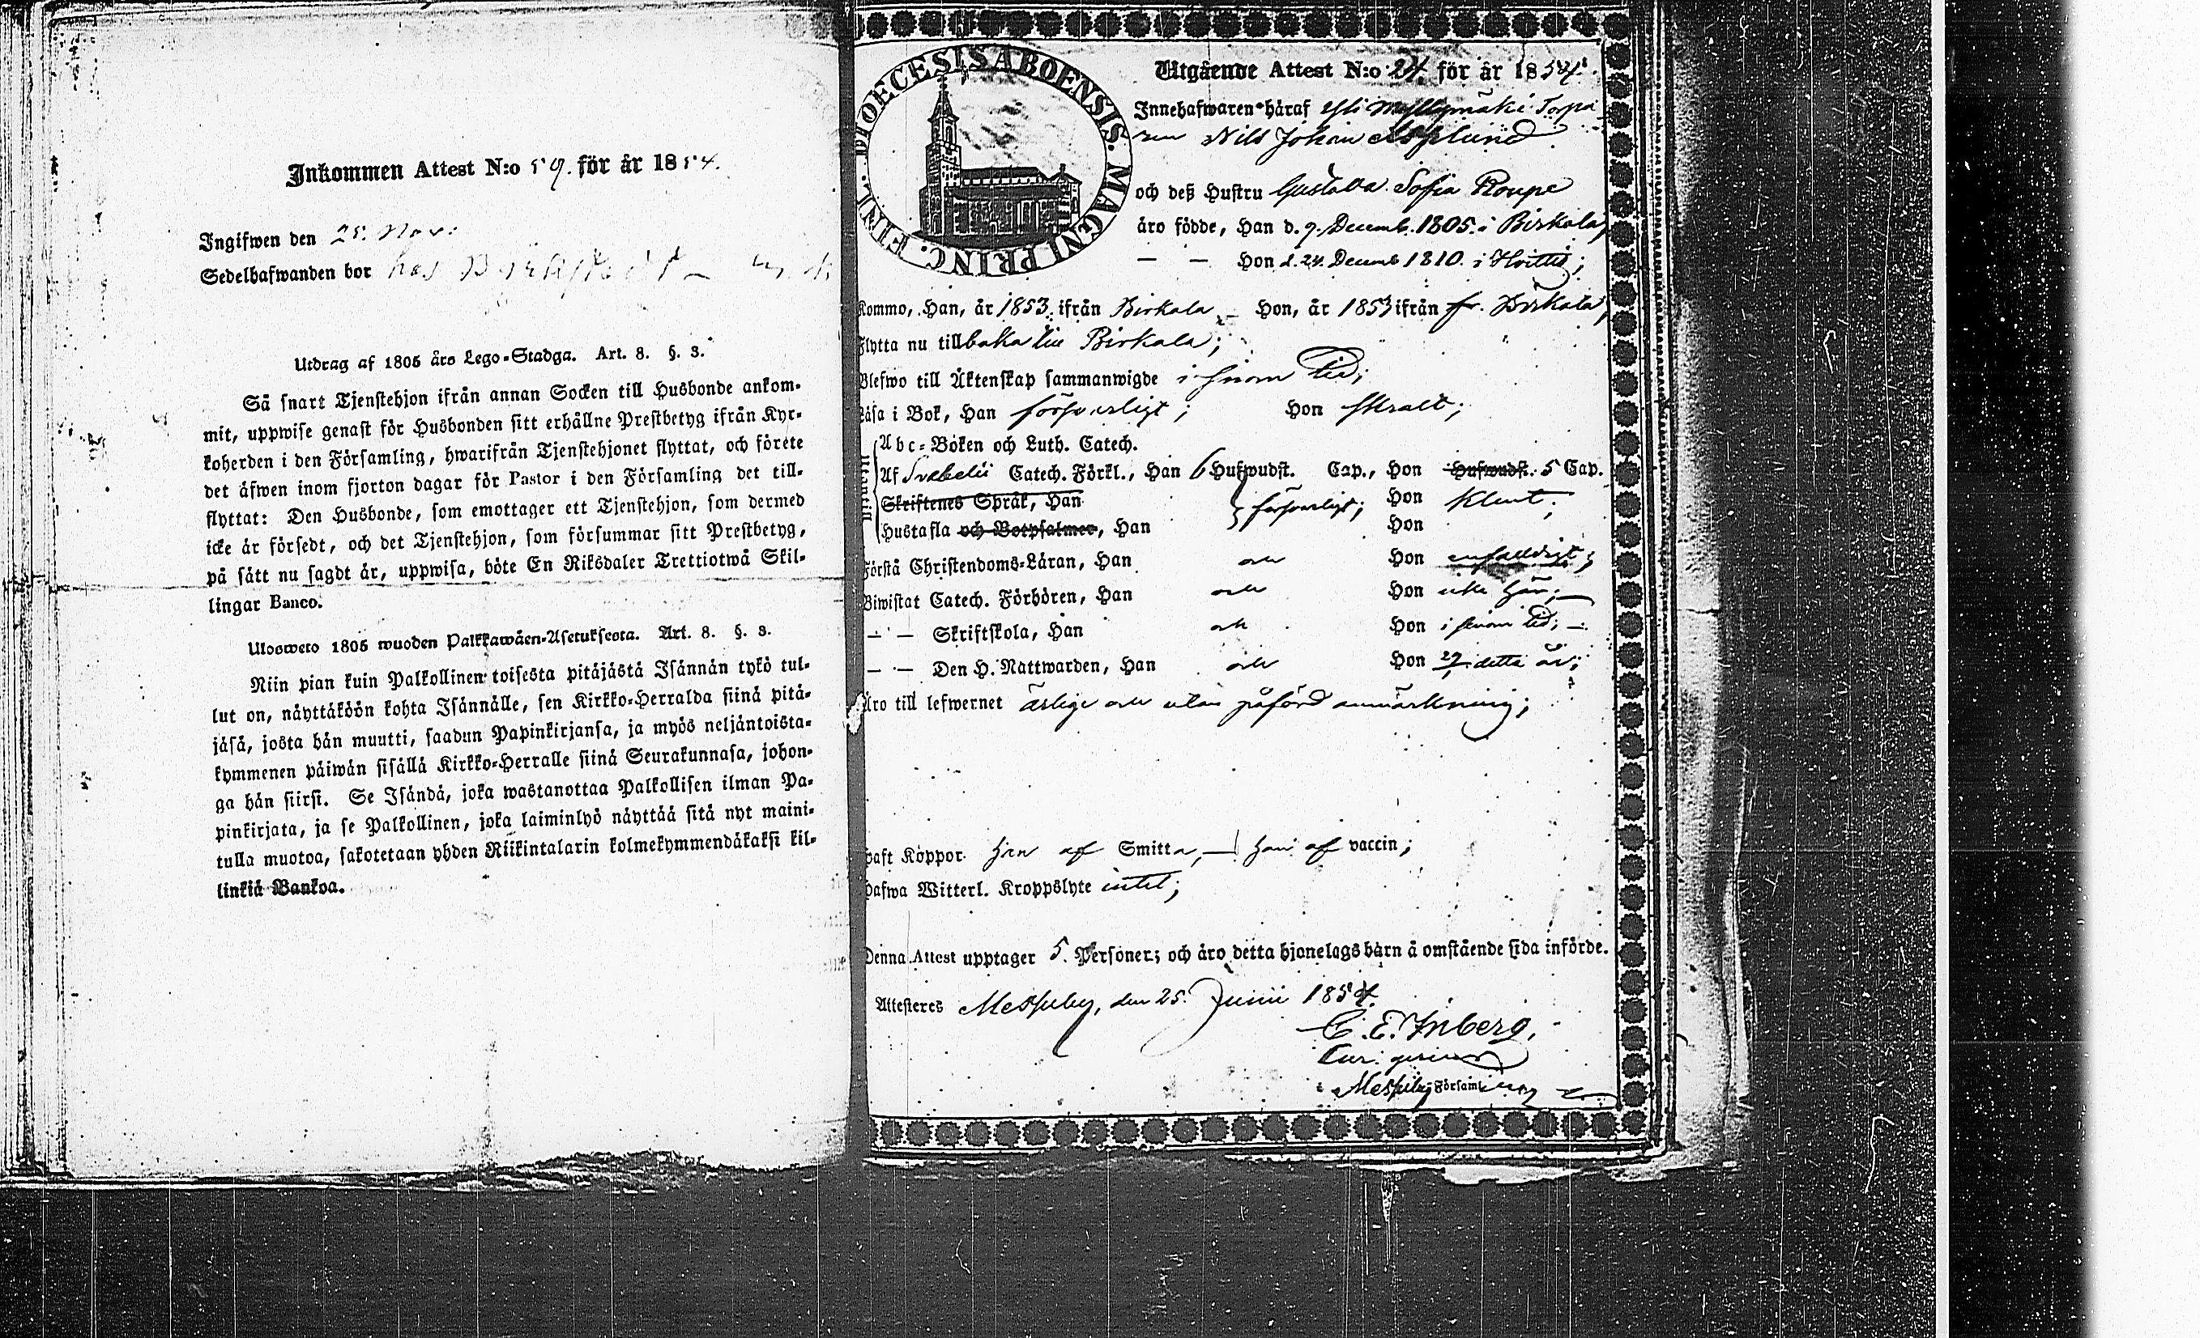 Inkommen Attest N:o 59. för år 1854.
Ingifwen den 25. Nov:
Sedelhafwanden bor hos
Utdrag af 1805 års Lego-Stadga. Art. 8. §. 3.
Så snart Tjenstehjon ifrån annan Socken till Husbonde ankom-
mit, uppwise genast för Husbonden sitt erhållne Prestbetyg ifrån Kyr-
koherden i den Församling, hwarifrån Tjenstehjonet flyttat, och förete
det äfwen inom fjorton dagar för Pastor i den Församling det till-
flyttat: Den Husbonde, som emottager ett Tjenstehjon, som dermed
icke är försedt, och det Tjenstehjon, som försummar sitt Prestbetyg,
på sätt nu sagdt är, uppwisa, böte En Riksdaler Trettiotwå Skil-
lingar Banco.
Ulosweto 1805 wuoden Palkkawäen-Asetuksesta. Art. 8. §. 3.
Niin pian kuin Palkollinen toisesta pitäjästä Isännän tykö tul-
lut on, näyttäköön kohta Isännälle, sen Kirkko-Herralda siinä pitä-
jäsä, josta hän muutti, saadun Papinkirjansa, ja myös neljäntoista-
kymmenen päiwän sisällä Kirkko-Herralle siinä Seurakunnasa, johon-
ga hän siirsi. Se Isändä, joka wastanottaa Palkollisen ilman Pa-
pinkirjata, ja se Palkollinen, joka laiminlyö näyttää sitä nyt maini-
tulla muotoa, sakotetaan yhden Riikintalarin kolmekymmendäkaksi kil-
linkiä Bankoa.
DIOECESIS ABOENSIS. MAGNI PRINC. FINL.
Utgående Attest N:o 24. för år 1854.
Innehafwaren häraf Yli Myllymäki Torpa
ren Nils Johan Asplund
och deß Hustru Gustava Sofia Roupe
äro födde, Han d. 9. Decemb. 1805. i Birkala,
— — Hon d. 24. Decemb 1810. i Hvittis;
Kommo, Han, år 1853. ifrån Birkala, Hon, år 1853 ifrån fr. Birkala,
Flytta nu tillbaka till Birkala;
Blefwo till Äktenskap sammanwigde i sinom tid;
Läsa i Bok, Han försvarligt; Hon skralt;
Abc-Boken och Luth. Catech.
Af Svebelii Catech. Förkl., Han 6 Hufwudst. Cap., Hon Hufwudst. 5 Cap.
Skriftenes Språk, Han försvarligt; Hon klent;
Hustafla och Botpsalmer, Han Hon
Förstå Christendoms-Läran, Han och Hon enfalldigt;
Biwistat Catech. Förhören, Han och Hon icke här;
— — Skriftskola, Han och Hon i sinom tid;
— — Den H. Nattwarden, Han och Hon detta år;
Äro till lefwernet ärlige och utan påförd anmärkning;
Haft Koppor Hon af Smitta, — Han af vaccin;
Hafwa Witterl. Kroppslyte intet;
Denna Attest upptager 5. Personer; och äro detta hjonelags barn å omstående sida införde.
Attesteres Messuby, den 25. Junii 1854.
C. E. Inberg,
i Messuby Församling